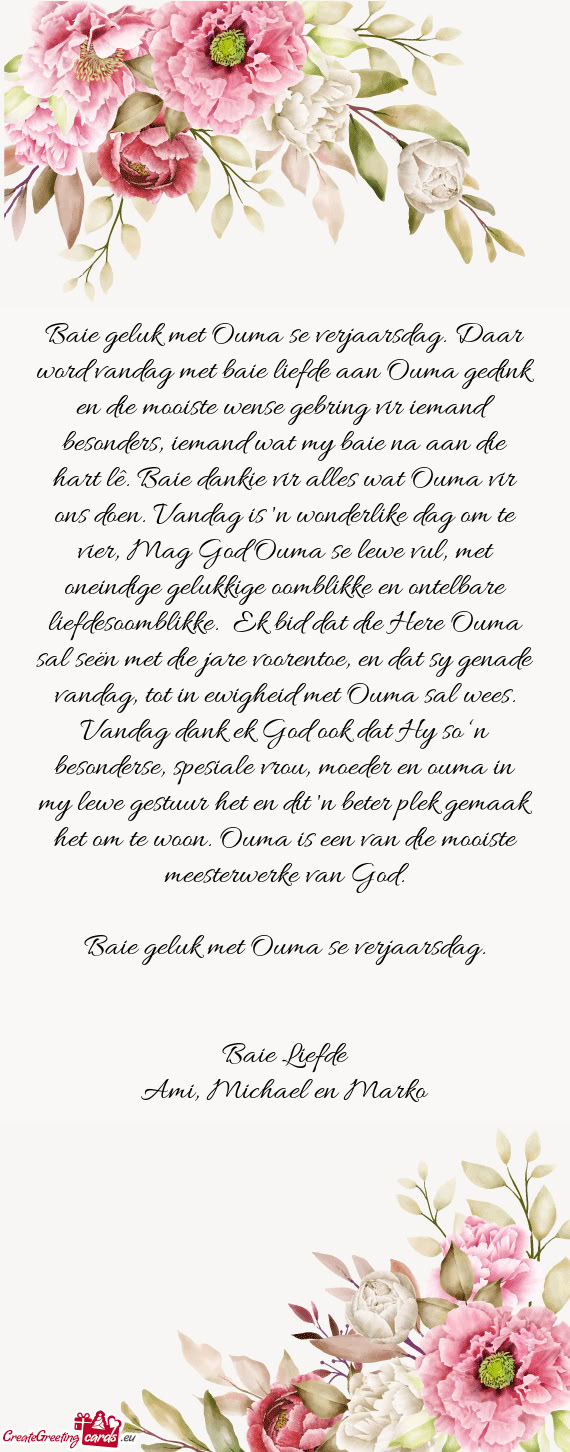 Baie geluk met Ouma se verjaarsdag. Daar
word vandag met baie liefde aan Ouma gedink
en die mooiste wense gebring vir iemand
besonders, iemand wat my baie na aan die
hart lê. Baie dankie vir alles wat Ouma vir
ons doen. Vandag is 'n wonderlike dag om te
vier, Mag God Ouma se lewe vul, met
oneindige gelukkige oomblikke en ontelbare
liefdesoomblikke. Ek bid dat die Here Ouma
sal seën met die jare voorentoe, en dat sy genade
vandag, tot in ewigheid met Ouma sal wees.
Vandag dank ek God ook dat Hy so ‘n
besonderse, spesiale vrou, moeder en ouma in
my lewe gestuur het en dit 'n beter plek gemaak
het om te woon. Ouma is een van die mooiste
meesterwerke van God.
Baie geluk met Ouma se verjaarsdag.
Baie Liefde
Ami, Michael en Marko
CreateGreeting cards .eu